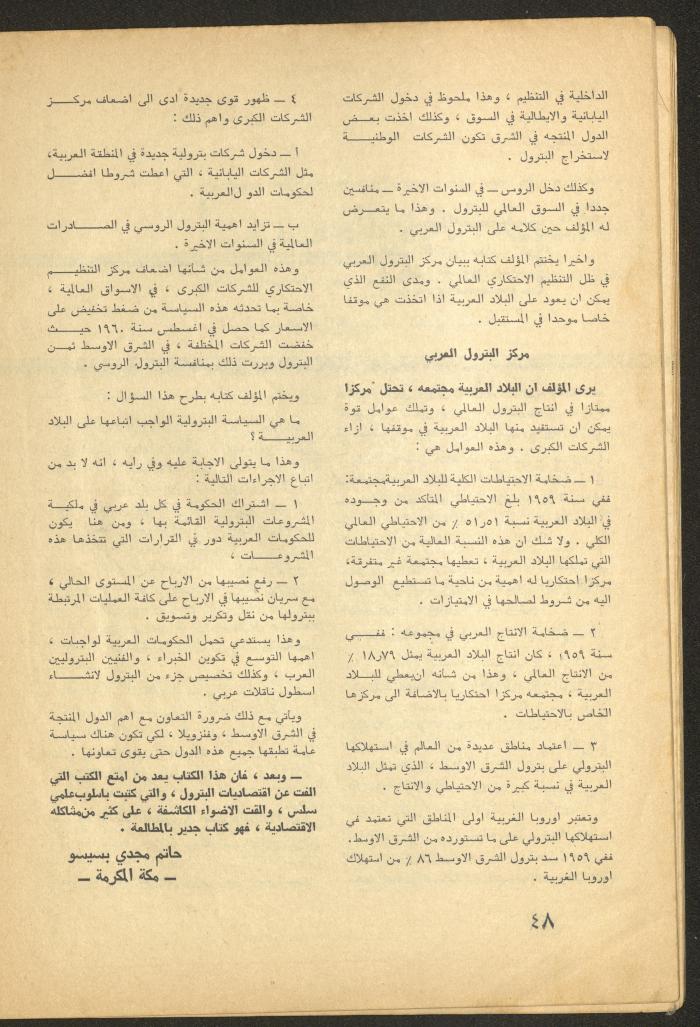 الداخلية في التنظيم ، وهذا ملحوظ في دخول الشركات
اليابانية والايطالية في السوق ، وكذلك اخذت بعــض
الدول المنتجه في الشرق تكون الشركات الوطنيــة
لاستخراج البترول .
وكذلك دخل الروس ــ في السنوات الاخيرة ــ منافسين
جددا في السوق العالمي للبترول . وهذا ما يتعــرض
له المؤلف حين كلامه على البترول العربي .
واخيرا يختتم المؤلف كتابه ببيان مركز البترول العربي
في ظل التنظيم الاحتكاري العالمي . ومدى النفع الذي
يمكن ان يعود على البلاد العربية اذا اتخذت هي موقفا
خاصا موحدا في المستقبل .
مركز البترول العربي
يرى المؤلف ان البلاد العربية مجتمعه ، تحتل مركزا
ممتازا في انتاج البترول العالمي ، وتملك عوامل قوة
يمكن ان تستفيد منها البلاد العربية في موقفها ، ازاء
الشركات الكبرى . وهذه العوامل هي :
١ ــ ضخامة الاحتياطات الكلية للبلاد العربيةمجتمعة:
ففي سنة ١٩٥٩ بلغ الاحتياطي المتأكد من وجــوده
في البلاد العربية نسبة ٥١ر٥١ ٪ من الاحتياطي العالمي
الكلي . ولا شك ان هذه النسبة العالية من الاحتياطات
التي تملكها البلاد العربية ، تعطيها مجتمعة غير متفرقة،
مركزا احتكاريا له اهمية من ناحية ما تستطيع الوصول
اليه من شروط لصالحها في الامتيازات .
٢ ــ ضخامة الانتاج العربي في مجموعه : ففــي
سنة ١٩٥٩ ، كان انتاج البلاد العربية يمثل ٧٩ر١٨ ٪
من الانتاج العالمي ، وهذا من شأنه انيعطي للبــلاد
العربية ، مجتمعه مركزا احتكاريا بالاضافة الى مركزها
الخاص بالاحتياطات .
٣ ــ اعتماد مناطق عديدة من العالم في استهلاكها
البترولي على بترول الشرق الاوسط ، الذي تمثل البلاد
العربية في نسبة كبيرة من الاحتياطي والانتاج .
وتعتبر اوروبا الغربية اولى المناطق التي تعتمد في
استهلاكها البترولي على ما تستورده من الشرق الاوسط.
ففي ١٩٥٩ سد بترول الشرق الاوسط ٨٦ ٪ من استهلاك
اوروبا الغربية .
٤ ــ ظهور قوى جديدة ادى الى اضعاف مركــز
الشركات الكبرى واهم ذلك :
أ ــ دخول شركات بترولية جديدة في المنطقة العربية،
مثل الشركات اليابانية ، التي اعطت شروطا افضــل
لحكومات الدو لالعربية .
ب ــ تزايد اهمية البترول الروسي في الصــادرات
العالمية في السنوات الاخيرة .
وهذه العوامل من شأنها اضعاف مركز التنظيــم
الاحتكاري للشركات الكبرى ، في الاسواق العالمية ،
خاصة بما تحدثه هذه السياسة من ضغط تخفيض على
الاسعار كما حصل في اغسطس سنة ١٩٦٠ حيــث
خفضت الشركات المختلفة ، في الشرق الاوسط ثمــن
البترول وبررت ذلك بمنافسة البترول الروسي .
ويختم المؤلف كتابه بطرح هذا السؤال :
ما هي السياسة البترولية الواجب اتباعها على البلاد
العربيــة ؟
وهذا ما يتولى الاجابة عليه وفي رايه ، انه لا بد من
اتباع الاجراءات التالية :
١ ــ اشتراك الحكومة في كل بلد عربي في ملكيــة
المشروعات البترولية القائمة بها ، ومن هنا يكون
للحكومات العربية دور في القرارات التي تتخذها هذه
المشروعــات ،
٢ ــ رفع نصيبها من الارباح عن المستوى الحالي ،
مع سريان نصيبها في الارباح على كافة العمليات المرتبطة
ببترولها من نقل وتكرير وتسويق .
وهذا يستدعي تحمل الحكومات العربية لواجبات ،
اهمها التوسع في تكوين الخبراء ، والفنيين البتروليين
العرب ، وكذلك تخصيص جزء من البترول لانشــاء
اسطول ناقلات عربي .
ويأتي مع ذلك ضرورة التعاون مع اهم الدول المنتجة
في الشرق الاوسط ، وفنزويلا ، لكي تكون هناك سياسة
عامة تطبقها جميع هذه الدول حتى يقوى تعاونها .
ــ وبعد ، فان هذا الكتاب يعد من امتع الكتب التي
الفت عن اقتصاديات البترول ، والتي كتبت باسلوبعلمي
سلس ، والقت الاضواء الكاشفة ، على كثير منمشاكله
الاقتصادية ، فهو كتاب جدير بالمطالعة .
حاتم مجدي بسيسو
ــ مكة المكرمة ــ
٤٨